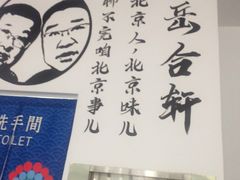 岳合轩
北京人·北京味儿
聊不完咱北京事儿
洗手間
TOILET